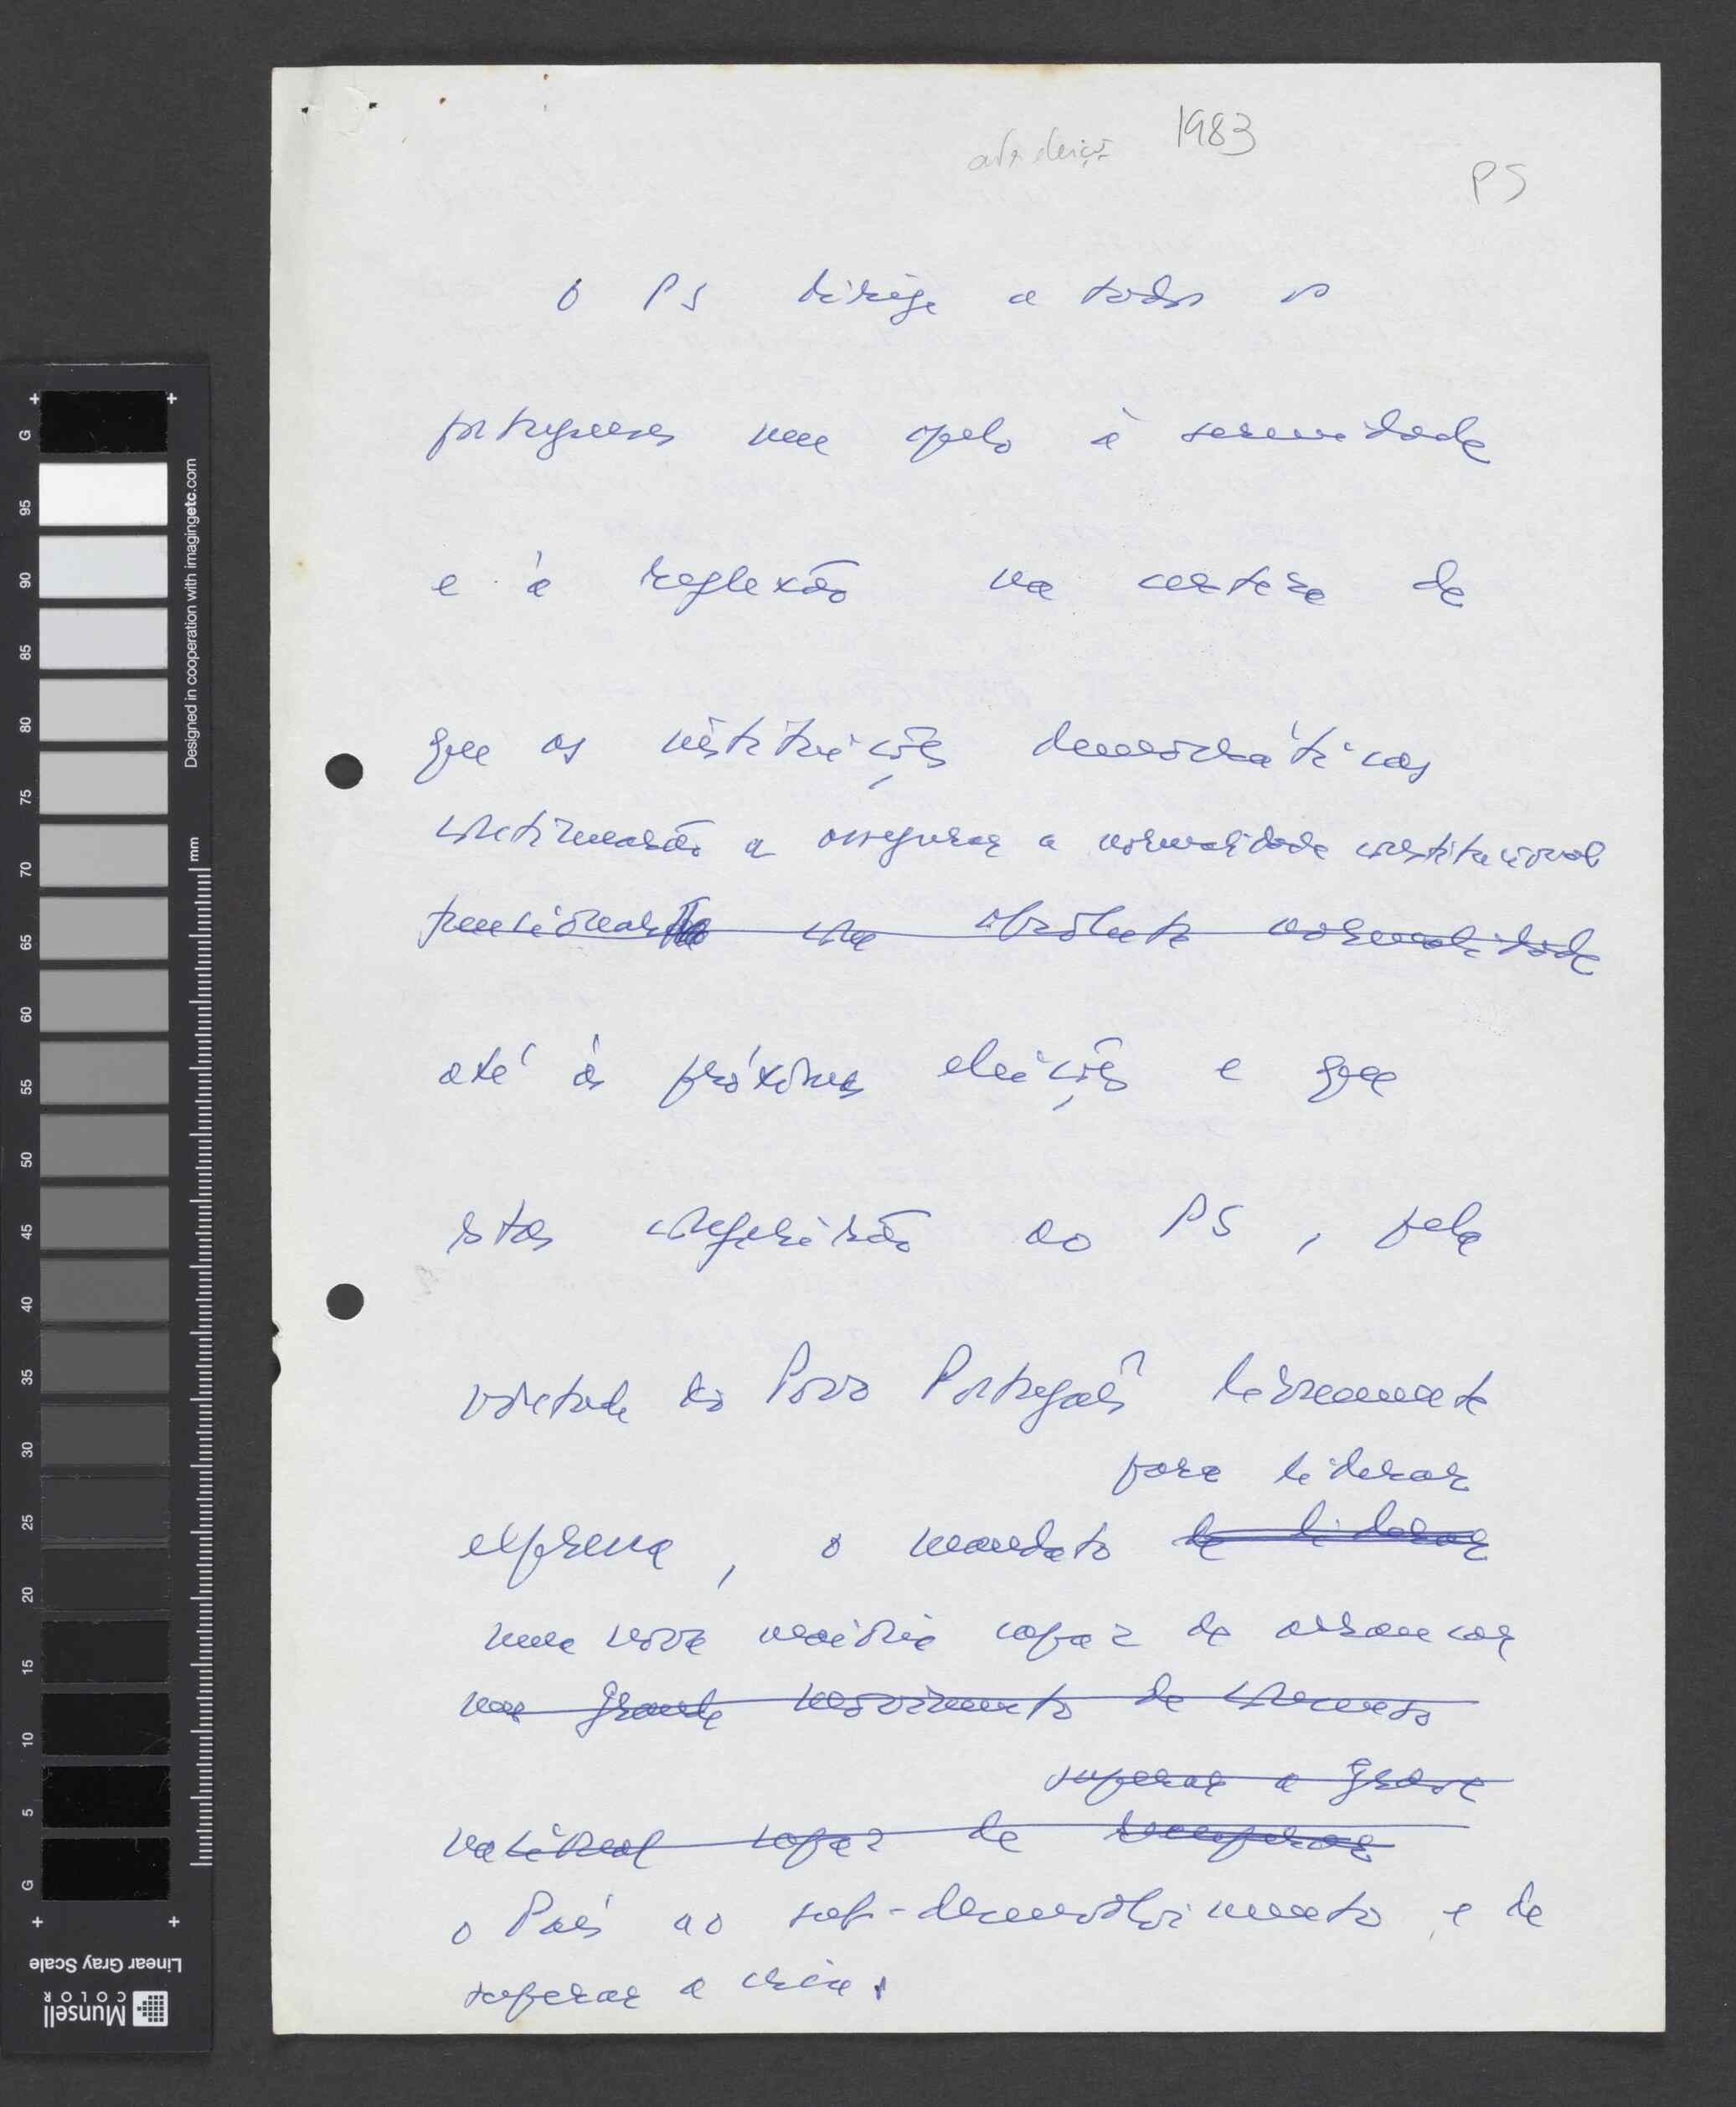 1983
PS
O PS dirige a todos os
portugueses um apelo à serenidade
e à reflexão na certeza de
que as instituições democráticas
continuarão a assegurar a normalidade constitucional
funcionarão com absoluta normalidade
até às próximas eleições e que
estas conferirão ao PS, pela
vontade do Povo Português livremente
para liderar
expressa, o mandato de liderar
uma nova maioria capaz de arrancar
um grande movimento de consenso
superar a grave
nacional capaz de
o País ao sub-desenvolvimento e de
superar a crise.
G
95
90
85
80
75
70
65
60
55
50
45
40
35
30
25
20
15
10
5
G
Designed in cooperation with imagingetc.com
mm
Munsell
COLOR
Linear Gray Scale